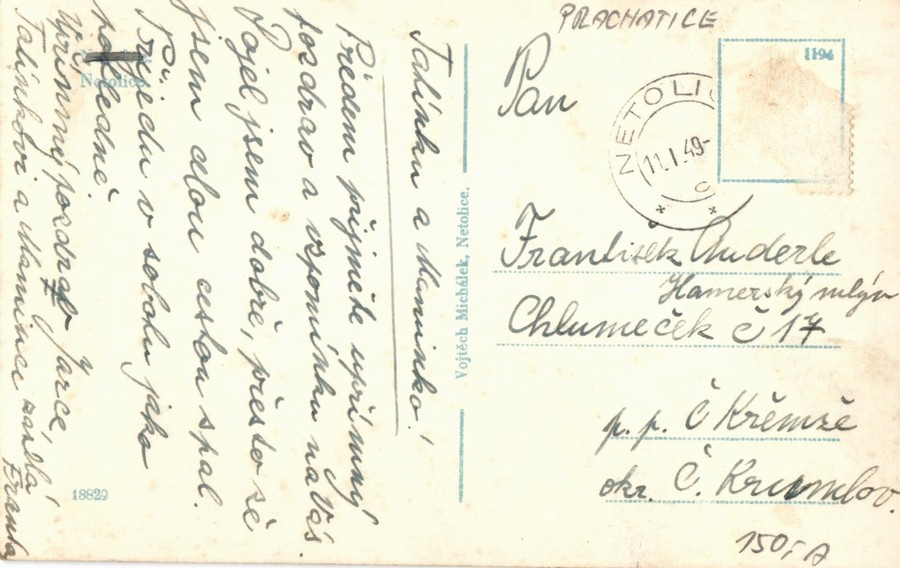 PRACHATICE
1194
NETOLIC
11.I.49-
C
Pan
František Anderle
Hamerský mlýn
Chlumeček č 17
p. p. Č Křemže
okr. Č. Krumlov.
150,- A
Vojtěch Michálek, Netolice.
Tatínku a Maminko!
Předem přijměte upřímný
pozdrav a vzpomínku na Vás.
Dojel jsem dobře, přesto že
jsem celou cestou spal.
Přijedu v sobotu jako
posledně.
Upřímný pozdrav Jarce,
Tatínkovi a Mamince zasílá
Franta
Netolice.
18829